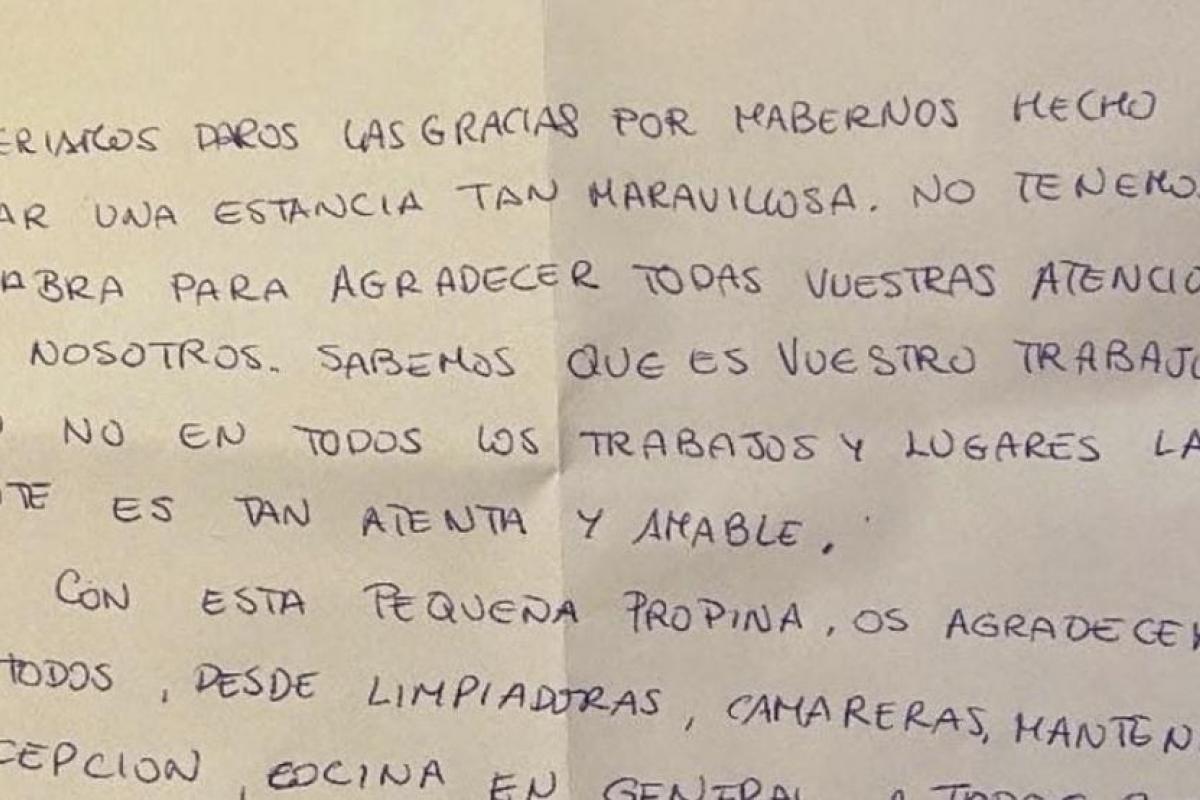 ERIAMOS DAROS LAS GRACIAS POR HABERNOS HECHO
AR UNA ESTANCIA TAN MARAVILLOSA. NO TENEMO
ABRA PARA AGRADECER TODAS VUESTRAS ATENCIO
NOSOTROS. SABEMOS QUE ES VUESTRO TRABAJO
NO EN TODOS LOS TRABAJOS Y LUGARES LA
TE ES TAN ATENTA Y AMABLE.
CON ESTA PEQUEÑA PROPINA, OS AGRADECEM
TODOS, DESDE LIMPIADORAS, CAMARERAS, MANTEN
CEPCION, COCINA EN GENERAL A TODOS